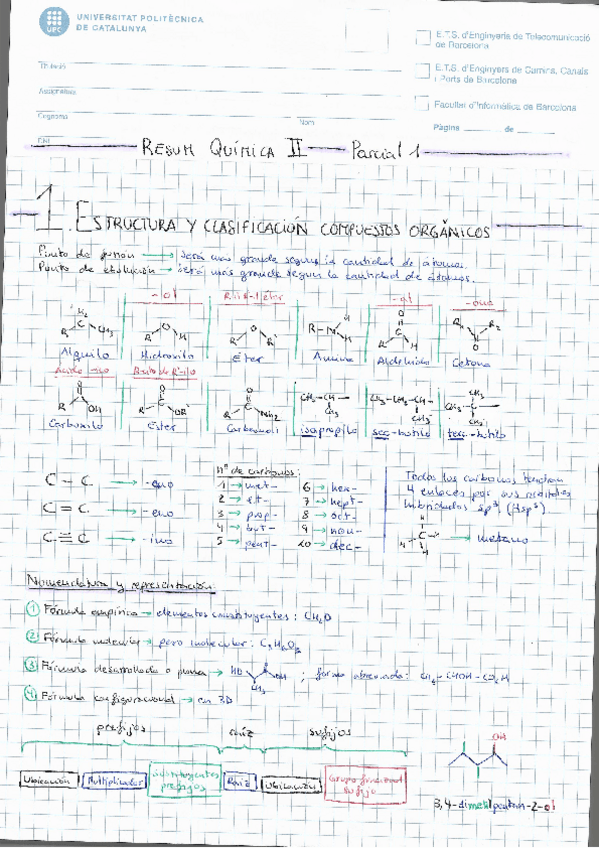 UNIVERSITAT POLITÈCNICA
DE CATALUNYA
UPC
E.T.S. d'Enginyeria de Telecomunicació
de Barcelona
E.T.S. d'Enginyers de Camins, Canals
i Ports de Barcelona
Facultat d'Informàtica de Barcelona
Titulació
Assignatura
Cognoms
Nom
Pàgina de
DNI
RESUM QUÍMICA II Parcial 1
1. ESTRUCTURA Y CLASIFICACIÓN COMPUESTOS ORGÁNICOS
Punto de fusión → será más grande según la cantidad de átomos.
Punto de ebullición → será más grande según la cantidad de átomos.
-ol
-al
-ona
Alquilo Hidroxilo Éter Amina Aldehído Cetona
Carboxilo Ester isopropilo sec-butilo terc-butilo
C – C → -ano
C = C → -eno
C ≡ C → -ino
nº de carbonos:
1 → met- 6 → hex-
2 → et- 7 → hept-
3 → prop- 8 → oct-
4 → but- 9 → non-
5 → pent- 10 → dec-
Todos los carbonos tendrán
4 enlaces por sus orbitales
híbridados sp³
→ metano
Nomenclatura y representación
1 Fórmula empírica → elementos constituyentes: CH₂O
2 Fórmula molecular → peso molecular: C₃H₆O₃
3 Fórmula desarrollada o plana → ; forma abreviada: CH₃-CHOH-CO₂H
4 Fórmula configuracional → en 3D
prefijos raíz sufijos
Ubicación Multiplicador Sustituyentes prefijos Raíz Ubicación Grupo funcional sufijo
OH
3,4-dimetilpentan-2-ol